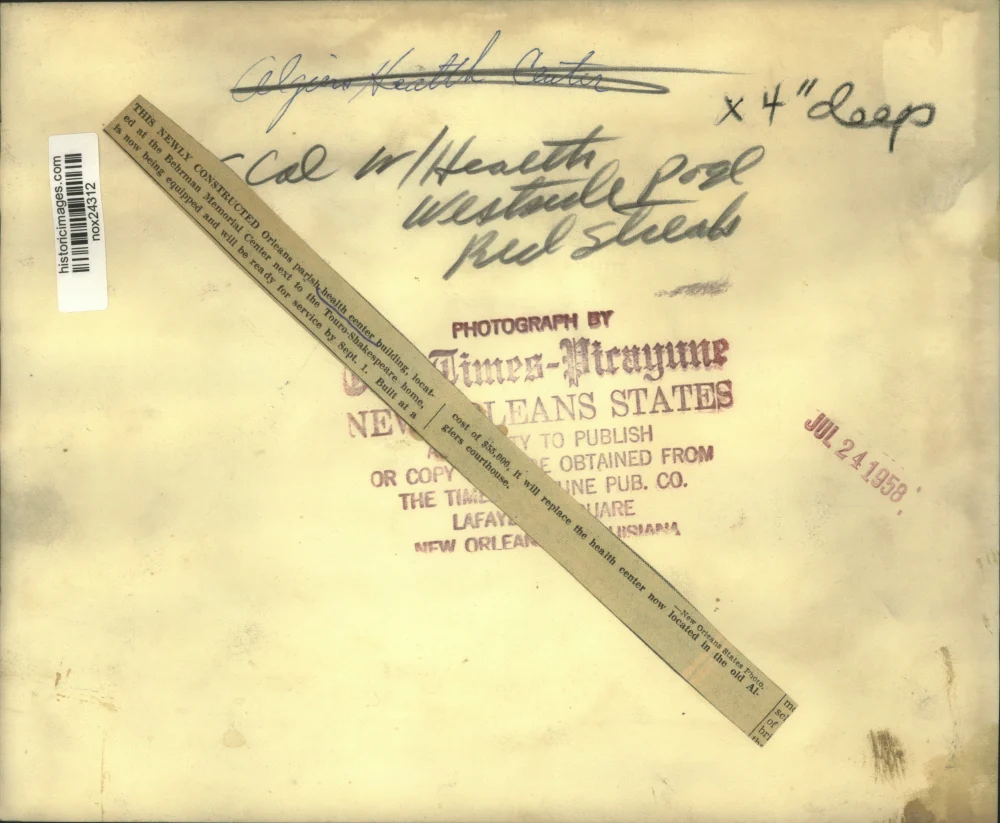 Algiers Health Center
x 4" deep
Cal W/Health
Westside Pool
Red Streak
historicimages.com
nox24312
THIS NEWLY CONSTRUCTED Orleans parish health center building, locat-
ed at the Behrman Memorial Center next to the Touro-Shakespeare home,
is now being equipped and will be ready for service by Sept. 1. Built at a
cost of $55,000, it will replace the health center now located in the old Al-
giers courthouse.
—New Orleans States Photo.
PHOTOGRAPH BY
Times-Picayune
NEW ORLEANS STATES
TY TO PUBLISH
OR COPY BE OBTAINED FROM
THE TIMES UNE PUB. CO.
LAFAYE UARE
NEW ORLEANS LOUISIANA
JUL 24 1958